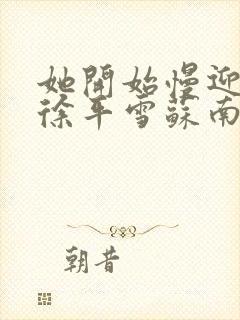 她開始慢迎
徐平雪蘇南
朝昔